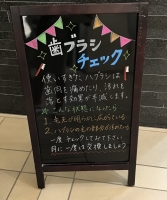 歯ブラシ
チェック
使いすぎた、ハブラシは
歯肉を痛めたり、汚れを
落とす効果が半減します。
こんな状態になったら
1. 毛先が明らかに広がっている
2. ハブラシの毛の部分が
一度チェックしてみて下さい。
月に一度は交換しましょう